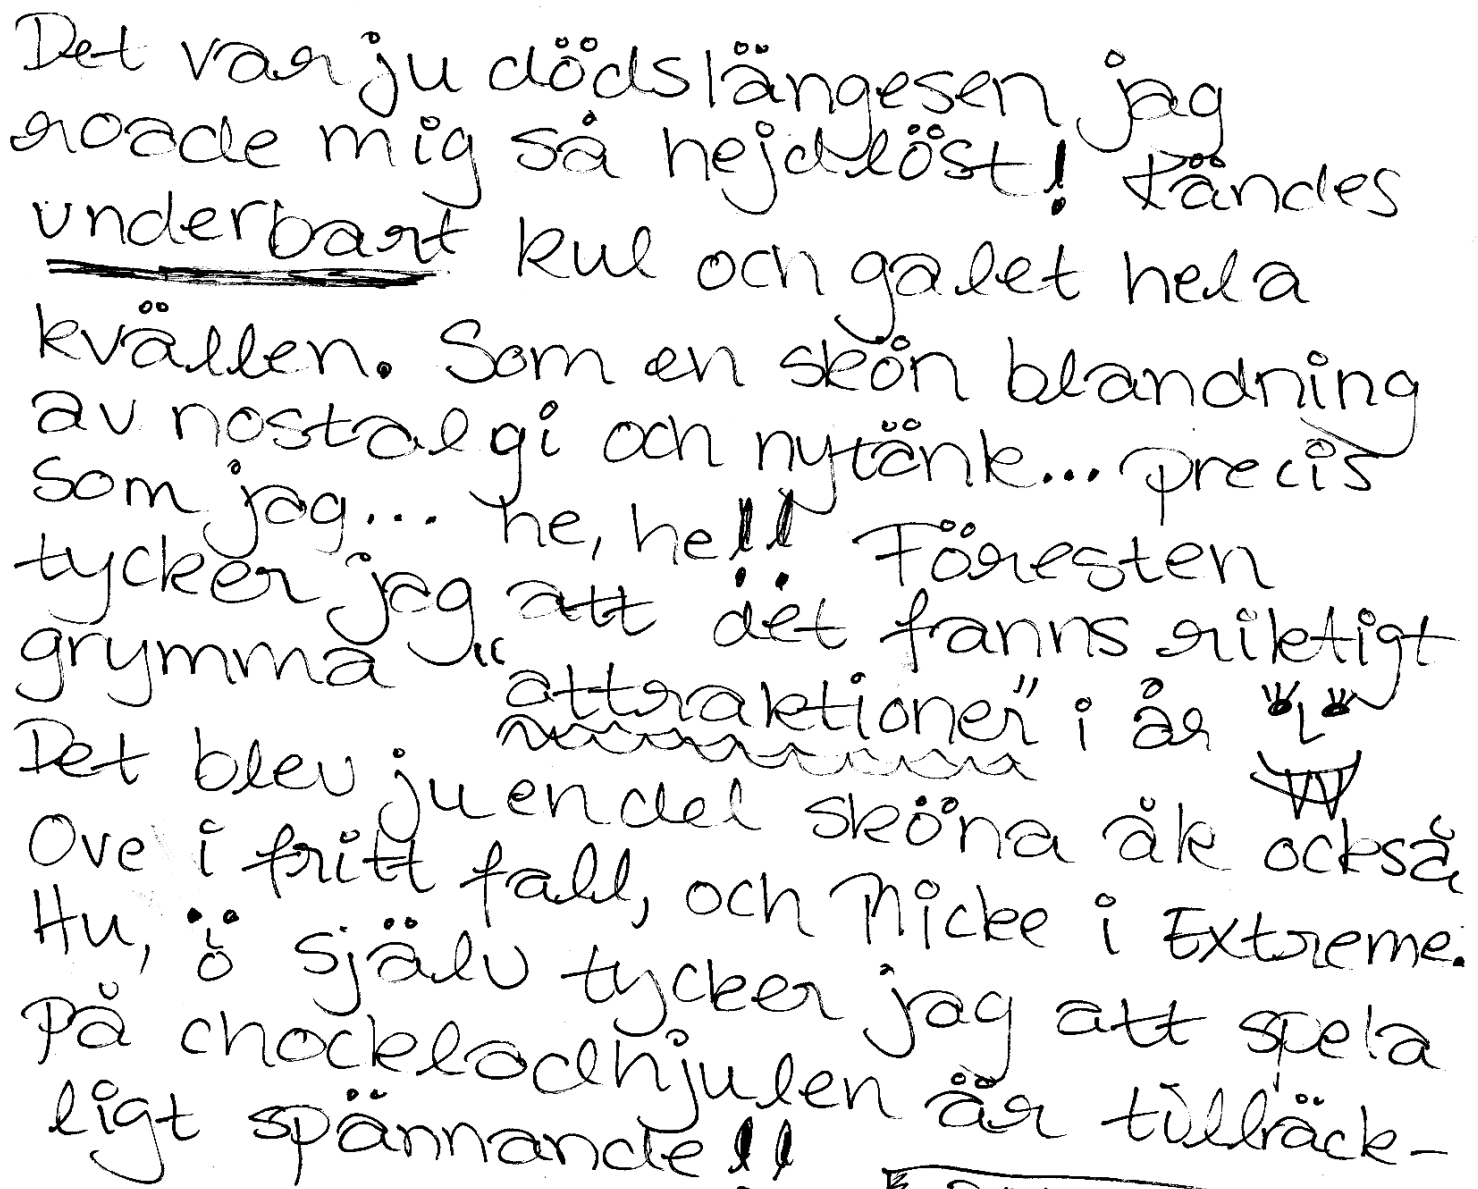 Det var ju dödslängesen jag
roade mig så hejdlöst! Kändes
underbart kul och galet hela
kvällen. Som en skön blandning
av nostalgi och nytänk... precis
som jag... he, he!! Föresten
tycker jag att det fanns riktigt
grymma "attraktioner" i år
Det blev ju endel sköna åk också
Ove i fritt fall, och Nicke i Extreme.
Hu, själv tycker jag att spela
På chockladhjulen är tillräck-
ligt spännande!!